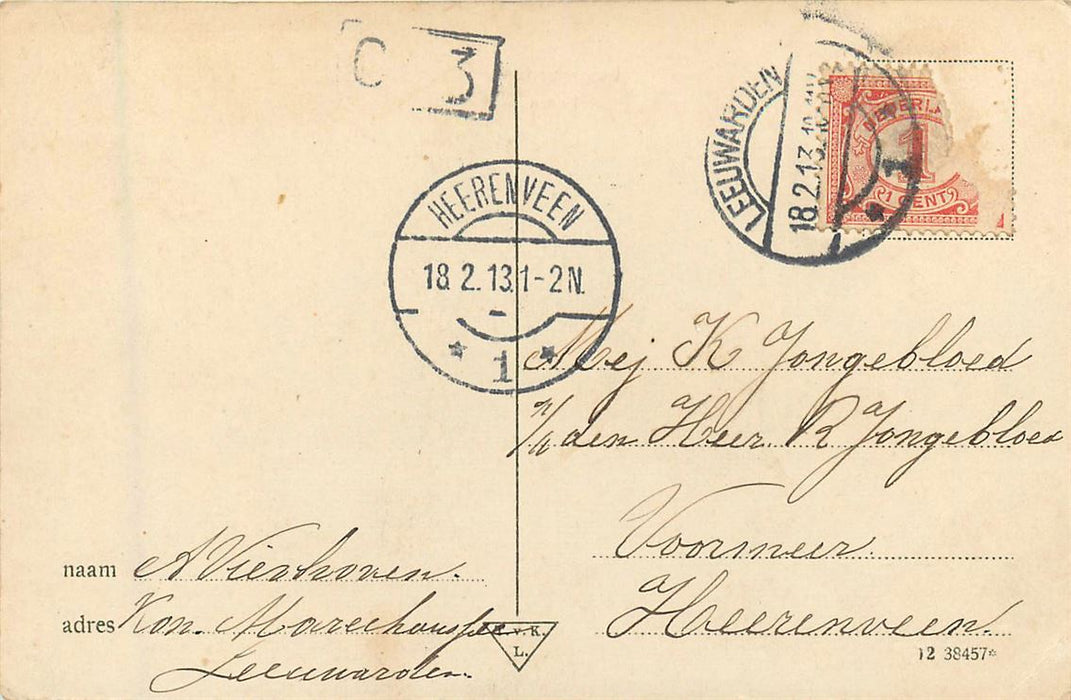 C 3
LEEUWARDEN
18.2.13
1
NEDERLA
1
1 CENT
HEERENVEEN
18.2.13.1-2N.
1
Mej K Jongebloed
p/a den Heer R Jongebloed
Voormeer.
Heerenveen.
naam A Vierhoven.
adres Kon. Marechaussee
Leeuwarden.
v. K.
L.
12 38457*